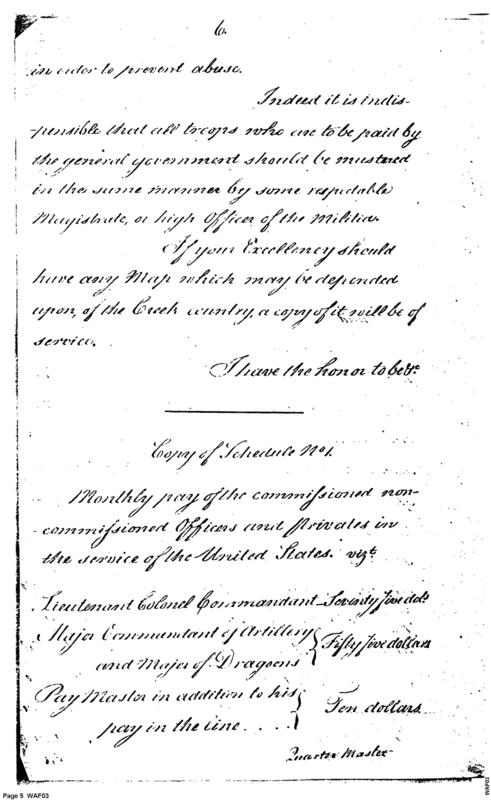 6.
in order to prevent abuse.
Indeed it is indis-
-pensible that all troops who are to be paid by
the general government should be mustered
in the same manner by some respectable
Magistrate, or high Officer of the Militia.
If your Excellency should
have any Map which may be depended
upon, of the Creek country, a copy of it will be of
service.
I have the honor to be &c.
Copy of Schedule No 1.
Monthly pay of the commissioned non-
-commissioned Officers and Privates in
the service of the United States. vizt.
Lieutenant Colonel Commandant - Seventy five dols.
Major Commandant of Artillery
and Major of Dragoons } Fifty five dollars
Pay Master in addition to his
pay in the Line . . . . } Ten dollars
Quarter Master
Page 5 WAF03
WAF03